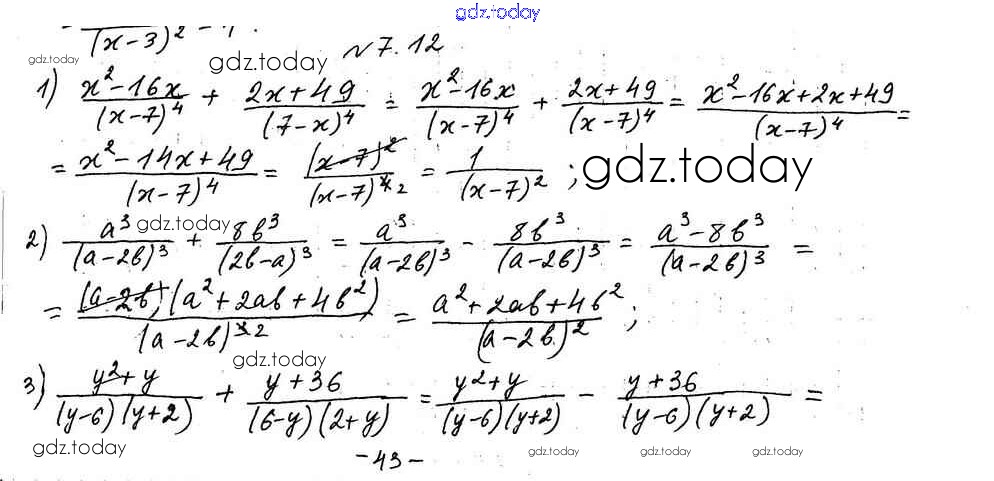 gdz.today
(x-3)² - 1.
gdz.today gdz.today №7.12
1) (x²-16x)/(x-7)⁴ + (2x+49)/(7-x)⁴ = (x²-16x)/(x-7)⁴ + (2x+49)/(x-7)⁴ = (x²-16x+2x+49)/(x-7)⁴ =
= (x²-14x+49)/(x-7)⁴ = (x-7)²/(x-7)⁴ ² = 1/(x-7)² ; gdz.today
gdz.today
2) a³/(a-2b)³ + 8b³/(2b-a)³ = a³/(a-2b)³ - 8b³/(a-2b)³ = (a³-8b³)/(a-2b)³ =
= (a-2b)(a²+2ab+4b²)/(a-2b)³ ² = (a²+2ab+4b²)/(a-2b)² ;
gdz.today
3) (y²+y)/((y-6)(y+2)) + (y+36)/((6-y)(2+y)) = (y²+y)/((y-6)(y+2)) - (y+36)/((y-6)(y+2)) =
gdz.today -43- gdz.today gdz.today gdz.today